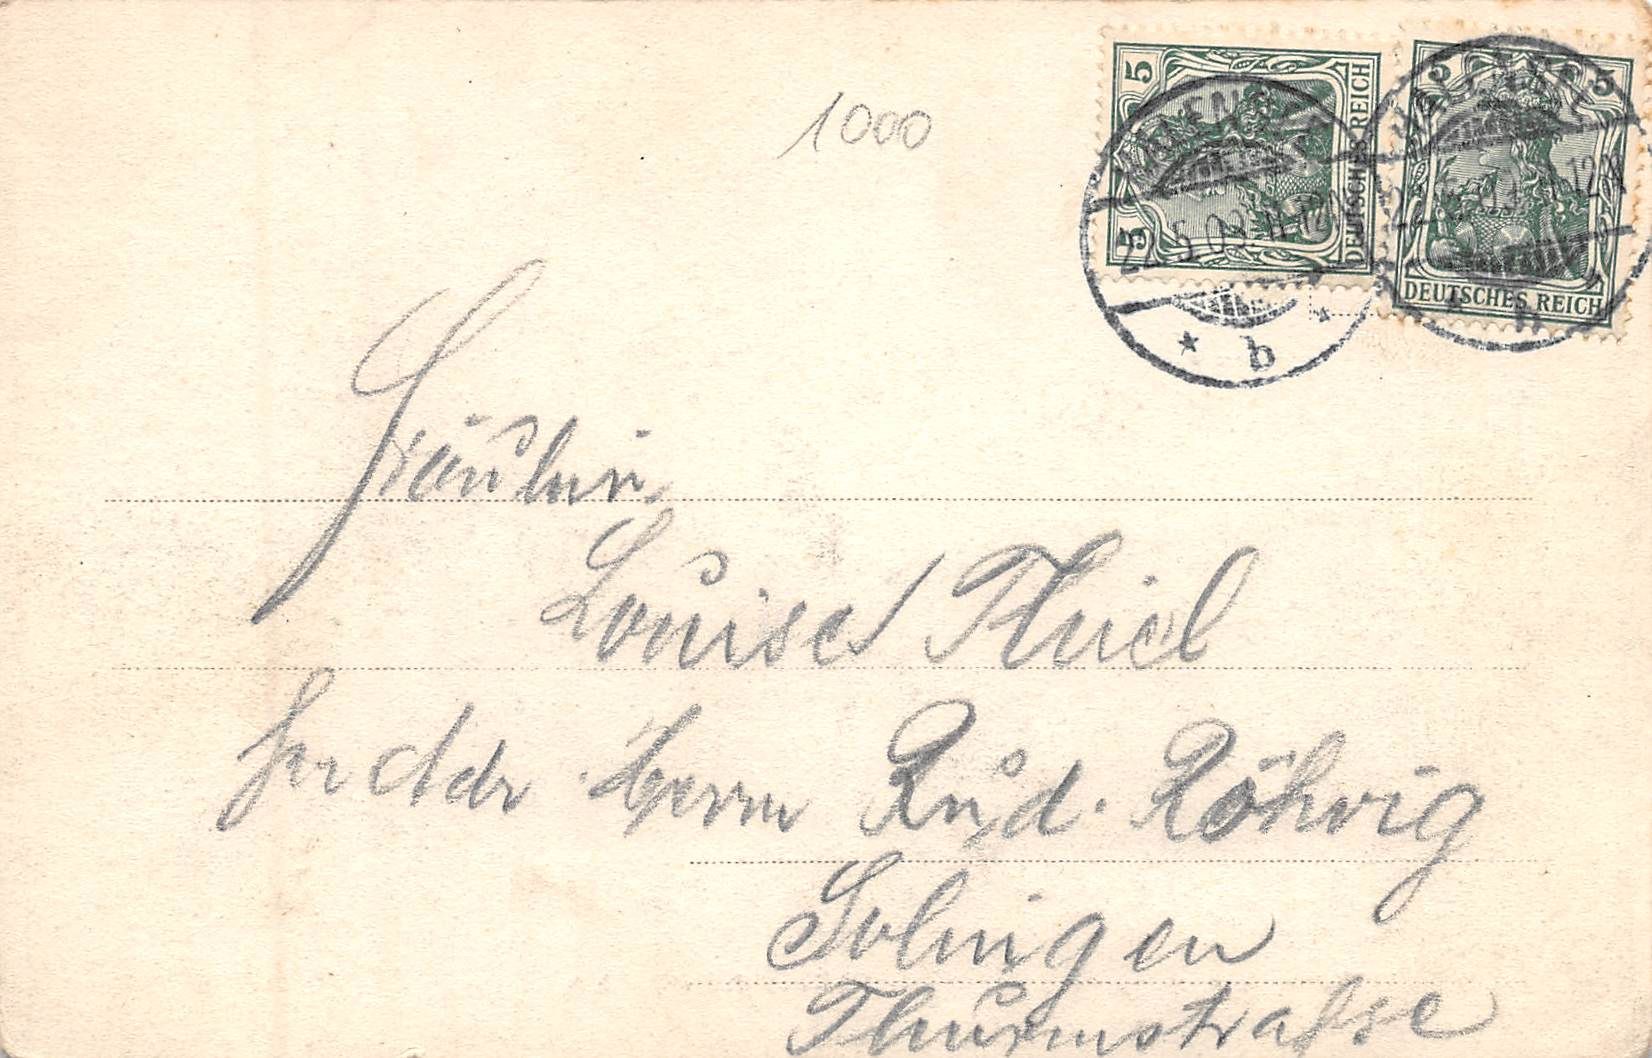 1000
5 5
DEUTSCHES REICH
5 5
DEUTSCHES REICH
22.5.03 11-12
b
Fräulein
Louise Thiel
per Adr Herrn Rud. Röhrig
Solingen
Thurmstraße